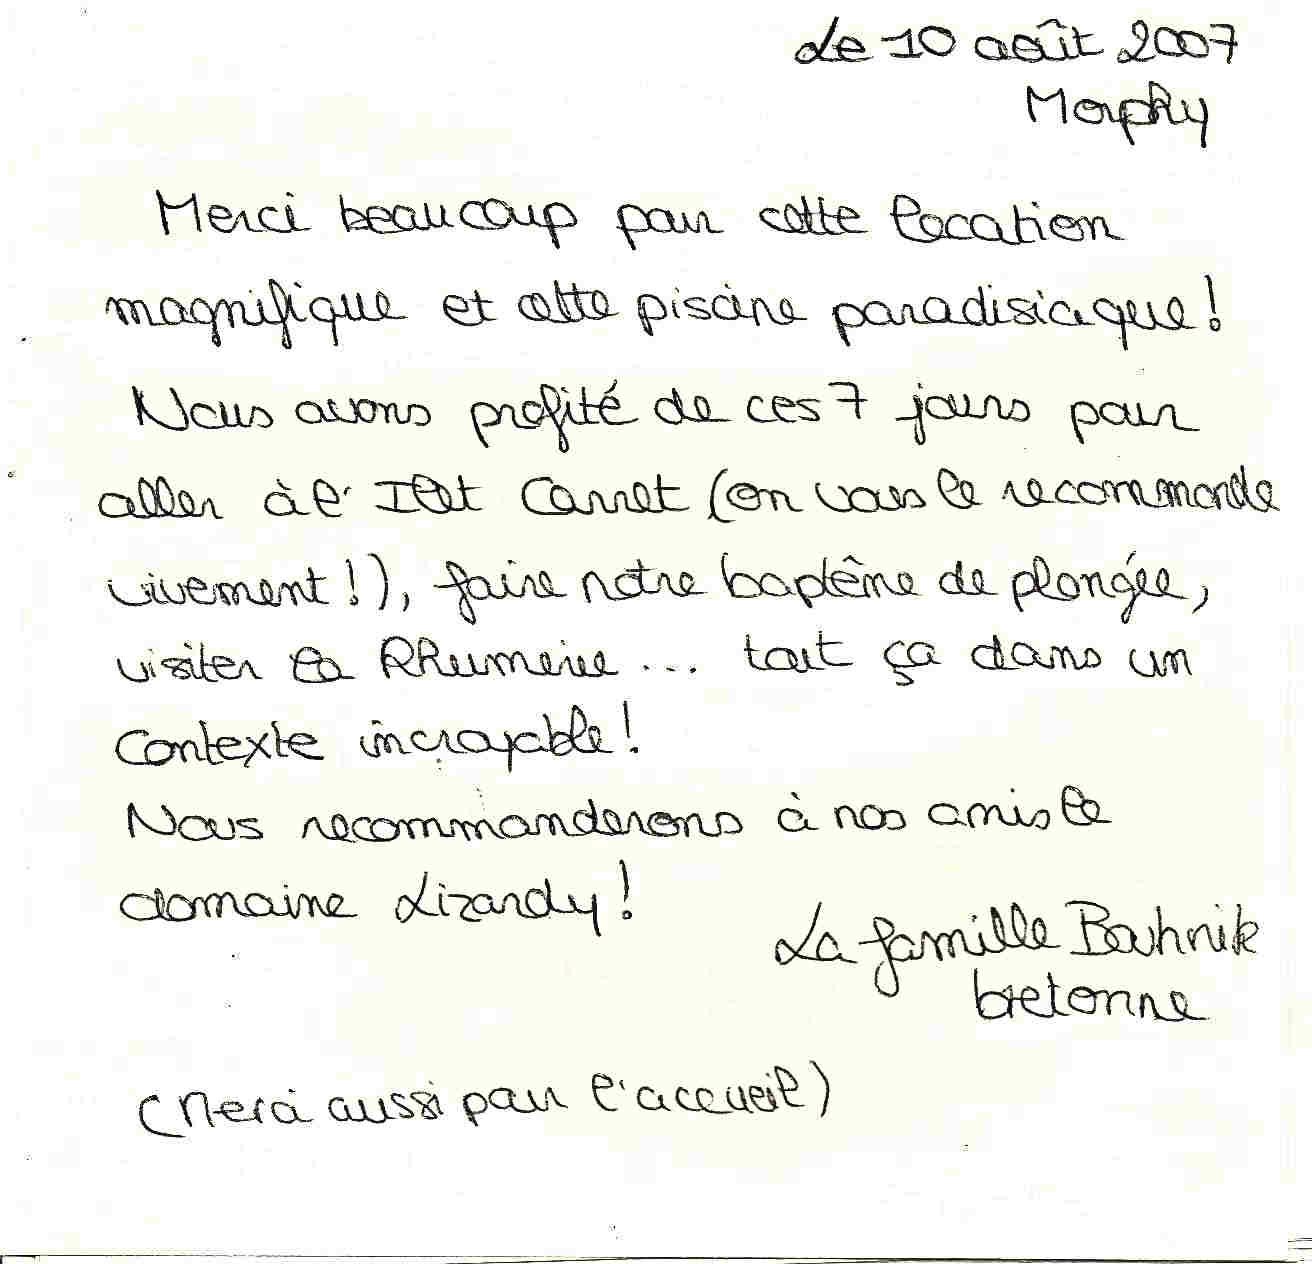 Le 10 août 2007
Morphy
Merci beaucoup pour cette location
magnifique et cette piscine paradisiaque!
Nous avons profité de ces 7 jours pour
aller à l'Ilet Carret (on vous le recommande
vivement!), faire notre baptême de plongée,
visiter la Rhumerie... tout ça dans un
contexte incroyable!
Nous recommanderons à nos amis le
domaine Lizardy!
La famille
bretonne
(Merci aussi pour l'accueil)